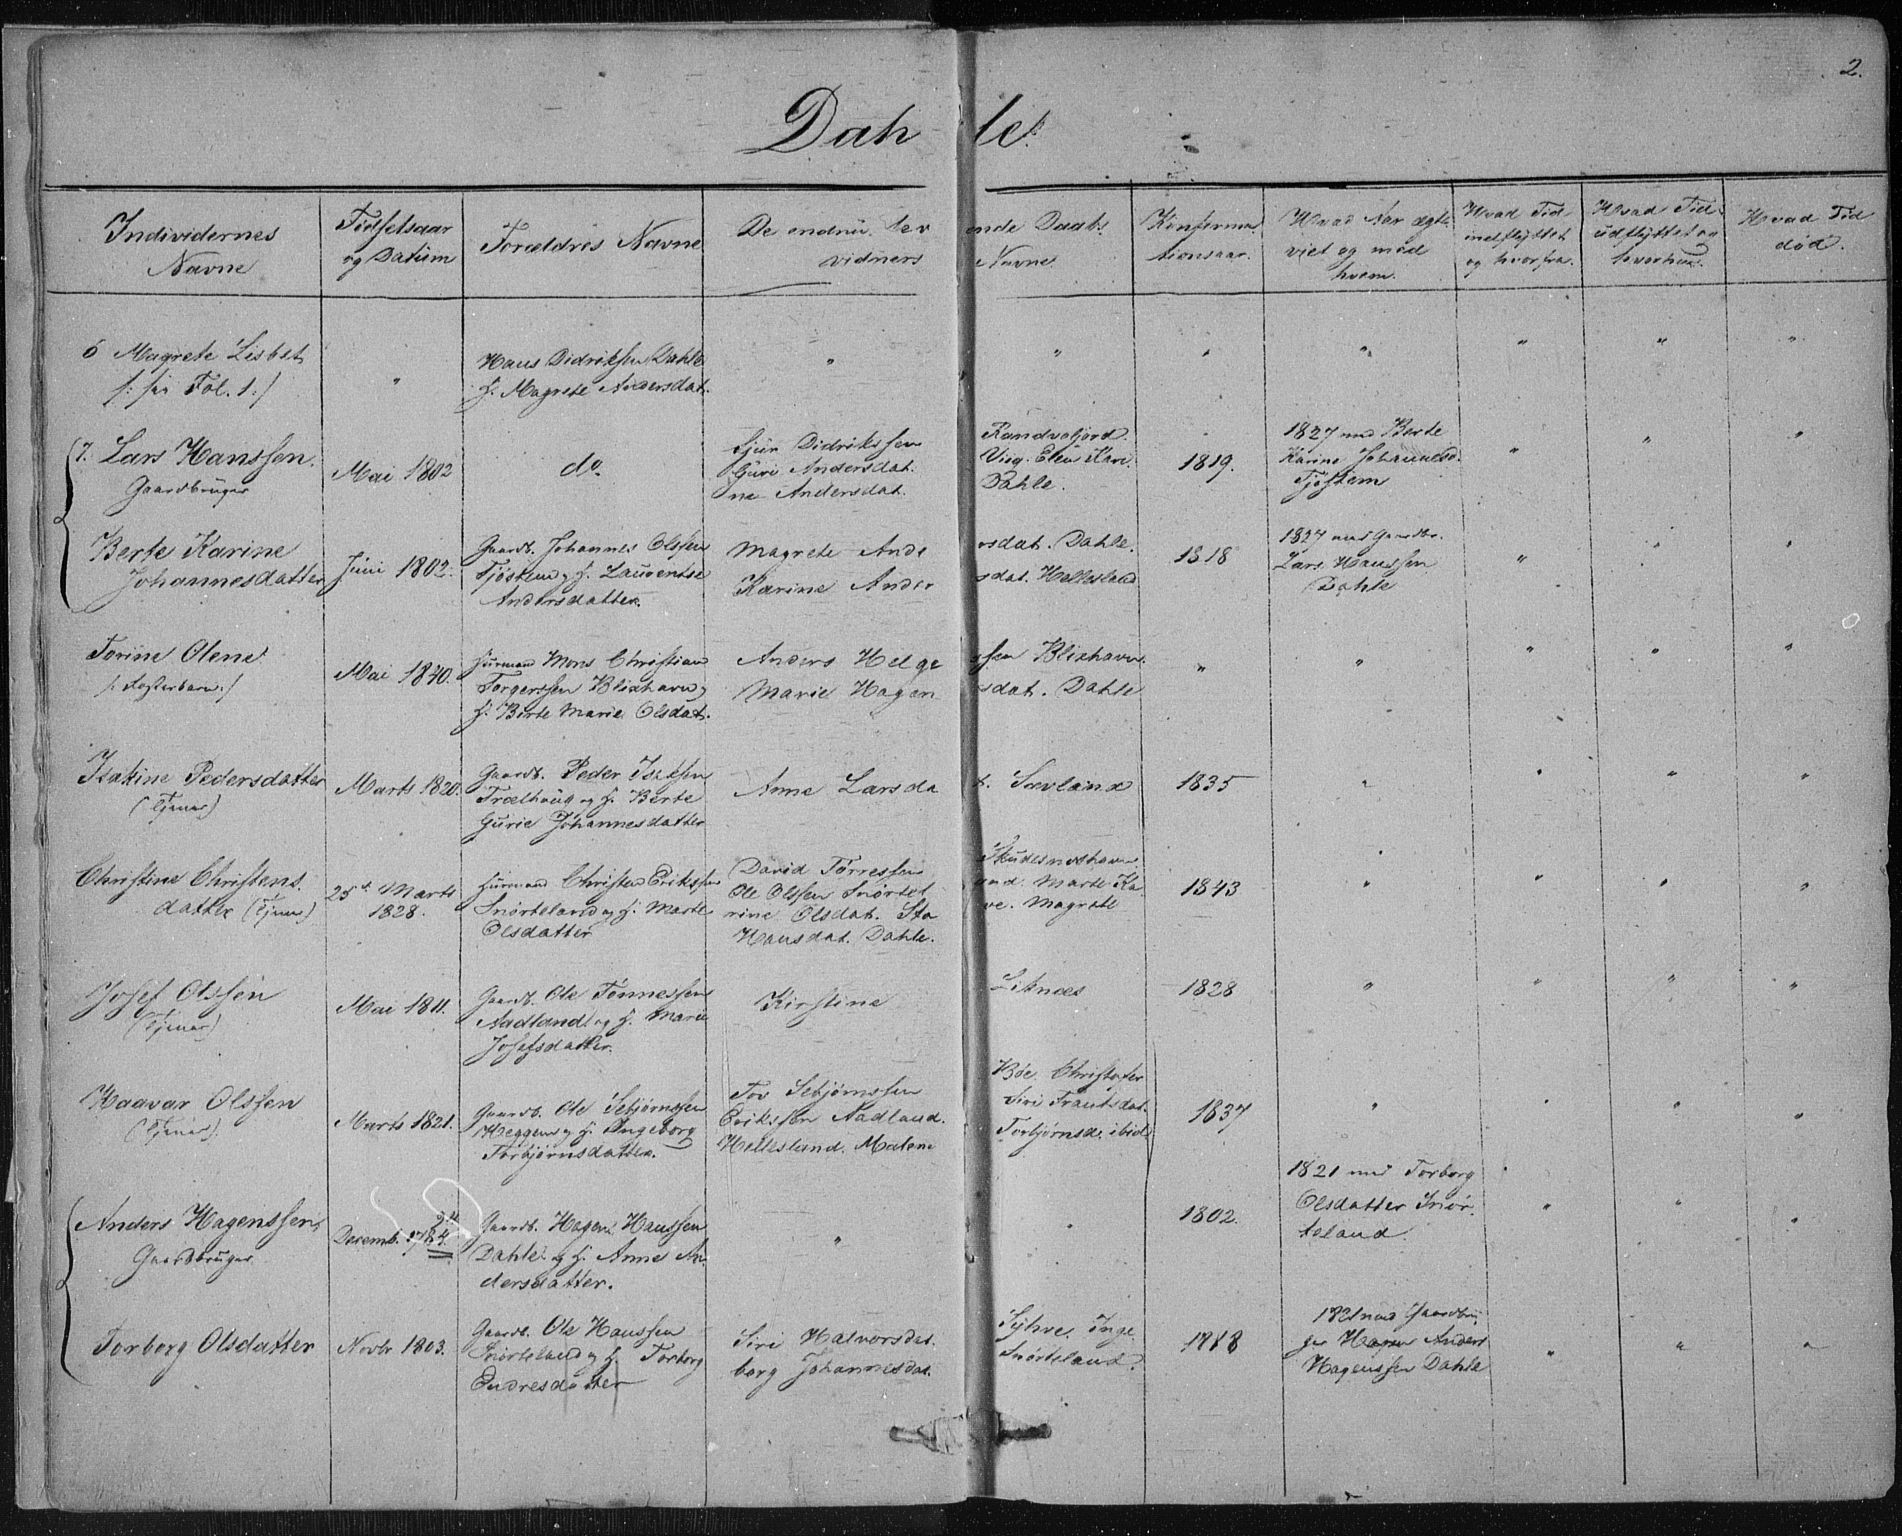 2.
Dahle.
Individernes Navne
Fødselsaar og Datum
Forældres Navne
De endnu levende Daabsvidners Navne
Konfirmationsaar.
Hvad Aar ægteviet og med hvem
Hvad Tid indflyttet og hvorfra.
Hvad Tid udflyttet og hvorhen.
Hvad Tid død.
6 Magrete Lisbet
Hans Didriksen Dahle
/: fra Fol. 1 :/
H. Magrete Andersdat.
7. Lars Hanssen.
Gaardbruger
Mai 1802
do
Sjur Didrikssen Randvafjord.
Guri Andersdat. Viig. Elen Kari
ne Andersdat. Dahle.
1819.
1827 med Berte
Karine Johannesd.
Tjøstem
Berte Karine
Johannesdatter
Juni 1802.
Gaardb. Johannes Olssen
Tjøstem og H. Laurentse
Andersdatter.
Magrete Andersdat. Dahle.
Karine Andersdat. Hellesland
1818
1827 med Gaardbr.
Lars Hanssen
Dahle
Torine Olene
/: Fosterbarn :/
Mai 1840.
Huusmand Mons Christian
Torgerssen Blixhavn og
H. Berte Marie Olsdat.
Anders Helgessen Blixhavn.
Marie Hagensdat. Dahle
Isakine Pedersdatter
(Tjener)
Marts 1820.
Gaardb. Peder Isaksen
Trælhaug og H. Berte
Gurie Johannesdatter
Anne Larsdat. Sævland
1835
Christine Christens
datter (Tjener)
25de Marts
1828.
Huusmand Christen Erikssen
Snørteland og H. Marte
Olsdatter
David Torressen Skudesneshavn
Ole Olssen Snørteland. Marte Ka
rine Olsdat. Stave. Magrete
Hansdat. Dahle.
1843
Josef Olssen
(Tjener)
Mai 1811.
Gaardb. Ole Tønnessen
Aadland og H. Marie
Josefsdatter.
Kirstine Liknes
1828
Haavar Olssen
(Tjener)
Marts 1821.
Gaardb. Ole Sebjørnssen
Heggem og H. Ingeborg
Torbjørnsdatter.
Tov Sebjørnssen Bøe. Christofer
Erikssen Aadland. Siri Trautsdat.
Hellesland. Malene Torbjørnsd. ibid
1837
Anders Hagenssen,
Gaardbruger
Decemb. 1784.
Gaardb. Hagen Hanssen
Dahle og H. Anne An
dersdatter.
1802.
1821 med Torborg
Olsdatter Snør
teland.
Torborg Olsdatter
Novbr 1803.
Gaardb. Ole Hanssen
Snørteland og H. Torborg
Endresdatter
Siri Halvorsdat. Syhve. Inge
borg Johannesdat. Snørteland.
1818
1821 med Gaardbru
ger Anders
Hagenssen Dahle